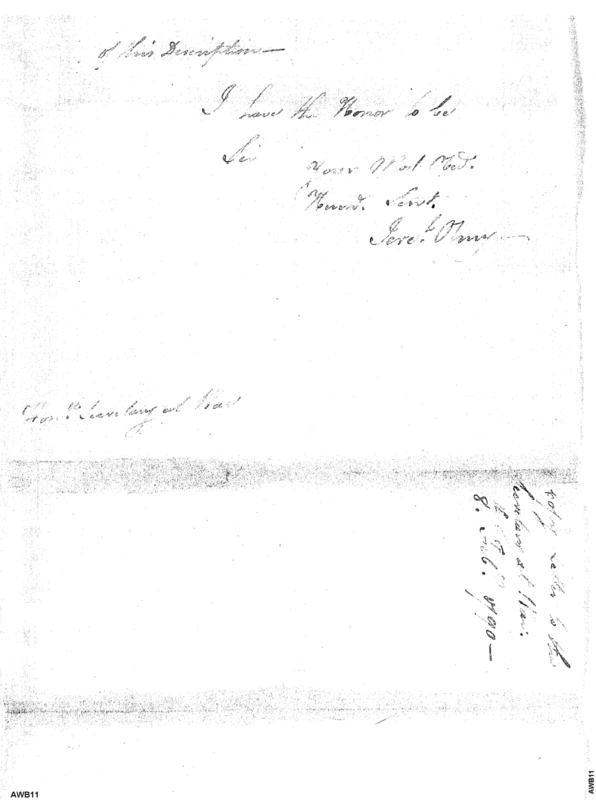 of this Description—
I have the Honor to be
Sir
Your Most Obd.
Humd. Servt.
Jereh. Olney—
Honble. Secretary at War
Copy Letter to the
Secretary at War.
8. Feb. 1790—
AWB11
AWB11